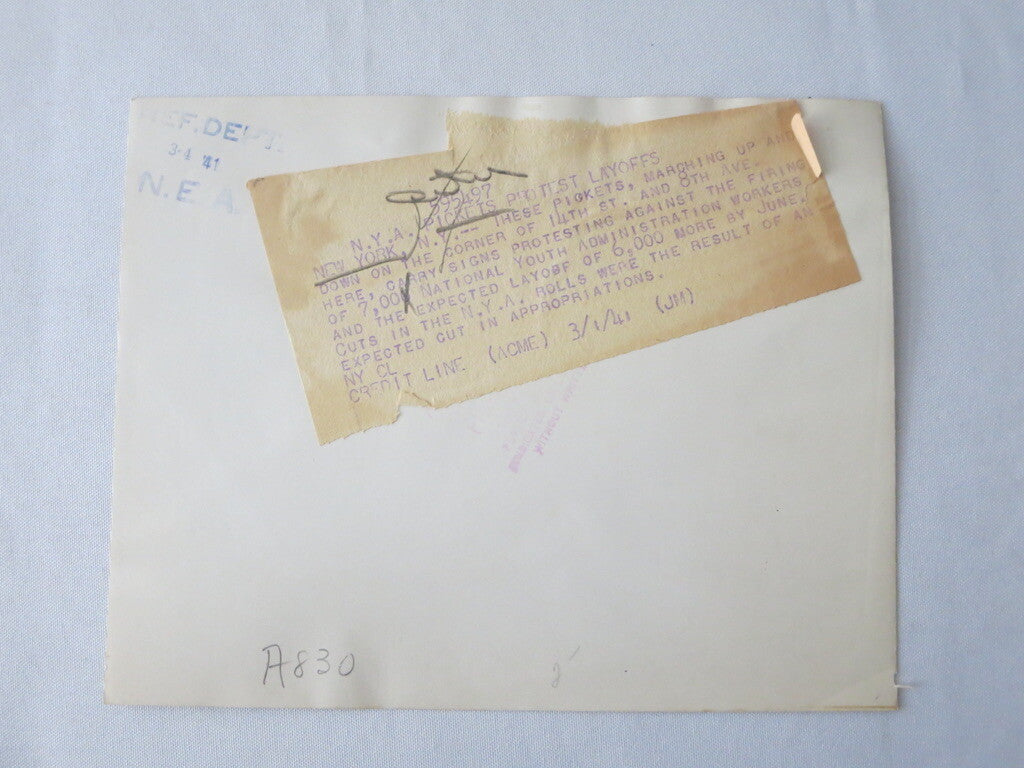 REF. DEPT.
3-4 '41
N. E. A.
595497
N.Y.A. PICKETS PROTEST LAYOFFS
NEW YORK, N.Y. -- THESE PICKETS, MARCHING UP AND
DOWN ON THE CORNER OF 14TH ST. AND 8TH AVE.
HERE, CARRY SIGNS PROTESTING AGAINST THE FIRING
OF 7,000 NATIONAL YOUTH ADMINISTRATION WORKERS
AND THE EXPECTED LAYOFF OF 6,000 MORE BY JUNE.
CUTS IN THE N.Y.A. ROLLS WERE THE RESULT OF AN
EXPECTED CUT IN APPROPRIATIONS.
NY CL
CREDIT LINE (ACME) 3/1/41 (JM)
WITHOUT
A830